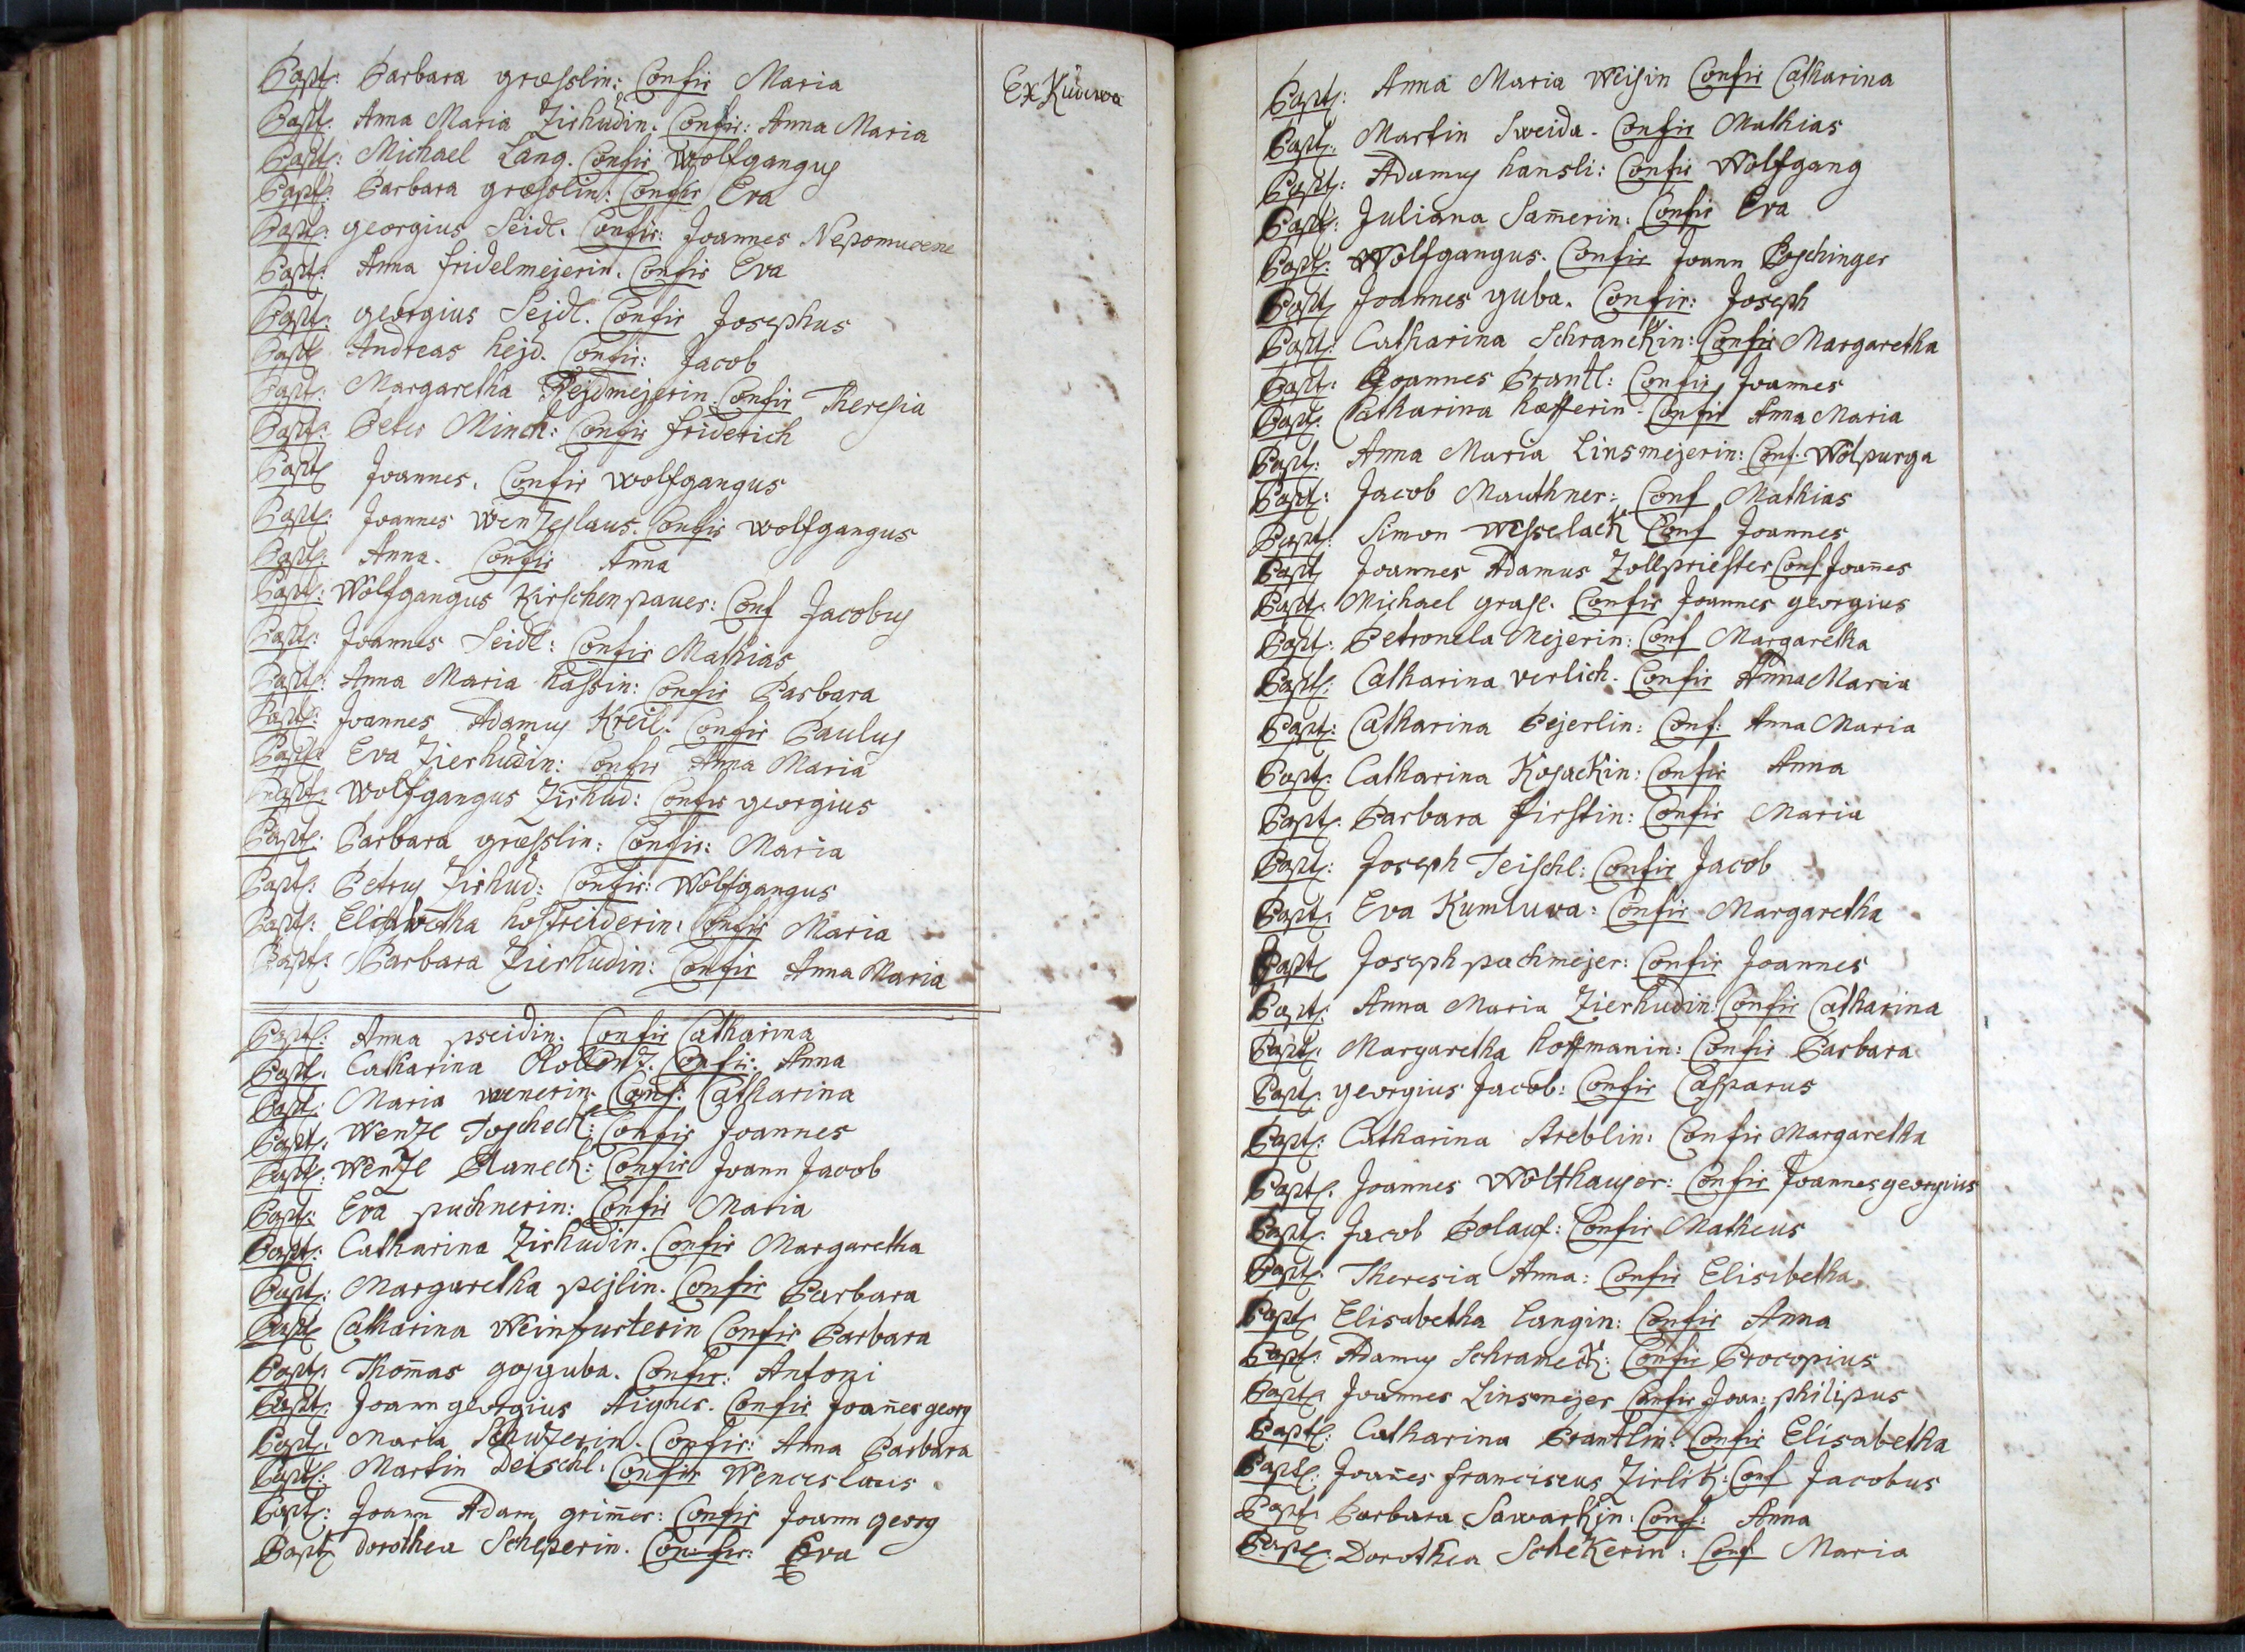 Bapt: Barbara græsslin: Confir Maria
Ex Kudowa
Bapt: Anna Maria Zirhudin. Confir: Anna Maria
Bapt: Michael Lang. Confir Wolfgangus
Bapt: Barbara græsslin: Confir Eva
Bapt: georgius Seidl. Confir: Joannes Nepomucene
Bapt: Anna fridelmejerin. Confir Eva
Bapt: georgius Seidl. Confir Josephus
Bapt: Andreas hejd. Confir: Jacob
Bapt: Margaretha Hejdmejerin. Confir Theresia
Bapt: Peter Minch: Confir friderich
Bapt Joannes. Confir wolfgangus
Bapt: Joannes Wenzeslaus. Confir wolfgangus
Bapt: Anna. Confir Anna
Bapt: Wolfgangus Kirschenpauer: Conf Jacobus
Bapt: Joannes Seidl: Confir Mathias
Bapt: Anna Maria hassin: Confir Barbara
Bapt: Joannes Adamus Kreil. Confir Paulus
Bapt: Eva Zierhudin: Confir Anna Maria
Bapt: Wolfgangus Zirhud: Confir georgius
Bapt: Barbara græsslin: Confir: Maria
Bapt: Petrus Zirhud: Confir: Wolfgangus
Bapt: Elisabetha hostreiderin: Confir Maria
Bapt: Barbara Zierhudin: Confir Anna Maria
Bapt: Anna pseidin: Confir Catharina
Bapt: Catharina Confir: Anna
Bapt: Maria wenerin. Conf: Catharina
Bapt: Wenzl Toscheck: Confir Joannes
Bapt: Wenzl Planeck: Confir Joann Jacob
Bapt: Eva puchnerin: Confir Maria
Bapt: Catharina Zirhudin. Confir Margaretha
Bapt: Margaretha pejlin. Confir Barbara
Bapt Catharina Weinfurterin Confir Barbara
Bapt: Thom̄as gosguba. Confir: Antoni
Bapt: Joann georgius Aigner. Confir Joan̄es georg
Bapt: Maria Schuzerin. Confir: Anna Barbara
Bapt: Martin Deischl: Confir Wenceslaus
Bapt: Joann Adam grim̄er: Confir Joann georg
Bapt dorothea Scheperin. Confir: Eva
Bapt: Anna Maria Weisin Confir Catharina
Bapt: Martin Sweida. Confir Mathias
Bapt: Adamus hansli: Confir Wolfgang
Bapt: Juliana Sam̄erin: Confir Eva
Bapt: Wolfgangus. Confir Joann Poschinger
Bapt Joannes guba. Confir: Joseph
Bapt: Catharina Schranckin: Confir Margaretha
Bapt: Joannes Brantl: Confir Joannes
Bapt: Catharina hæfferin. Confir Anna Maria
Bapt: Anna Maria Linsmejerin: Conf. Wolpurga
Bapt: Jacob Mauthner: Conf Mathias
Bapt: Simon Wesselack Conf Joannes
Bapt Joannes Adamus Zollpriester Conf Joan̄es
Bapt: Michael grasl. Confir Joannes georgius
Bapt: Petronela Mejerin: Conf Margaretha
Bapt: Catharina verlich. Confir Anna Maria
Bapt: Catharina Pejerlin: Conf: Anna Maria
Bapt: Catharina Kosackin: Confir Anna
Bapt: Barbara firstin: Confir Maria
Bapt: Joseph Teischl: Confir Jacob
Bapt: Eva Kumluwa: Confir Margaretha
Bapt Joseph pachmejer: Confir Joannes
Bapt: Anna Maria Zierhudin: Confir Catharina
Bapt: Margaretha hoffmanin: Confir Barbara
Bapt: georgius Jacob: Confir Casparus
Bapt: Catharina Streblin: Confir Margaretha
Bapt: Joannes Wolthauser: Confir Joannes georgius
Bapt: Jacob Polauf: Confir Matheus
Bapt: Theresia Anna: Confir Elisabetha
Bapt Elisabetha Langin: Confir Anna
Bapt: Adamus Schrameck: Confir Procopius
Bapt: Joannes Linsmejer Confir Joan: philipus
Bapt: Catharina Brantlin: Confir Elisabetha
Bapt: Joan̄es franciscus Zirlik: Conf Jacobus
Bapt: Barbara Sawarkin: Conf: Anna
Bapt: Dorothea Schekerin: Conf Maria